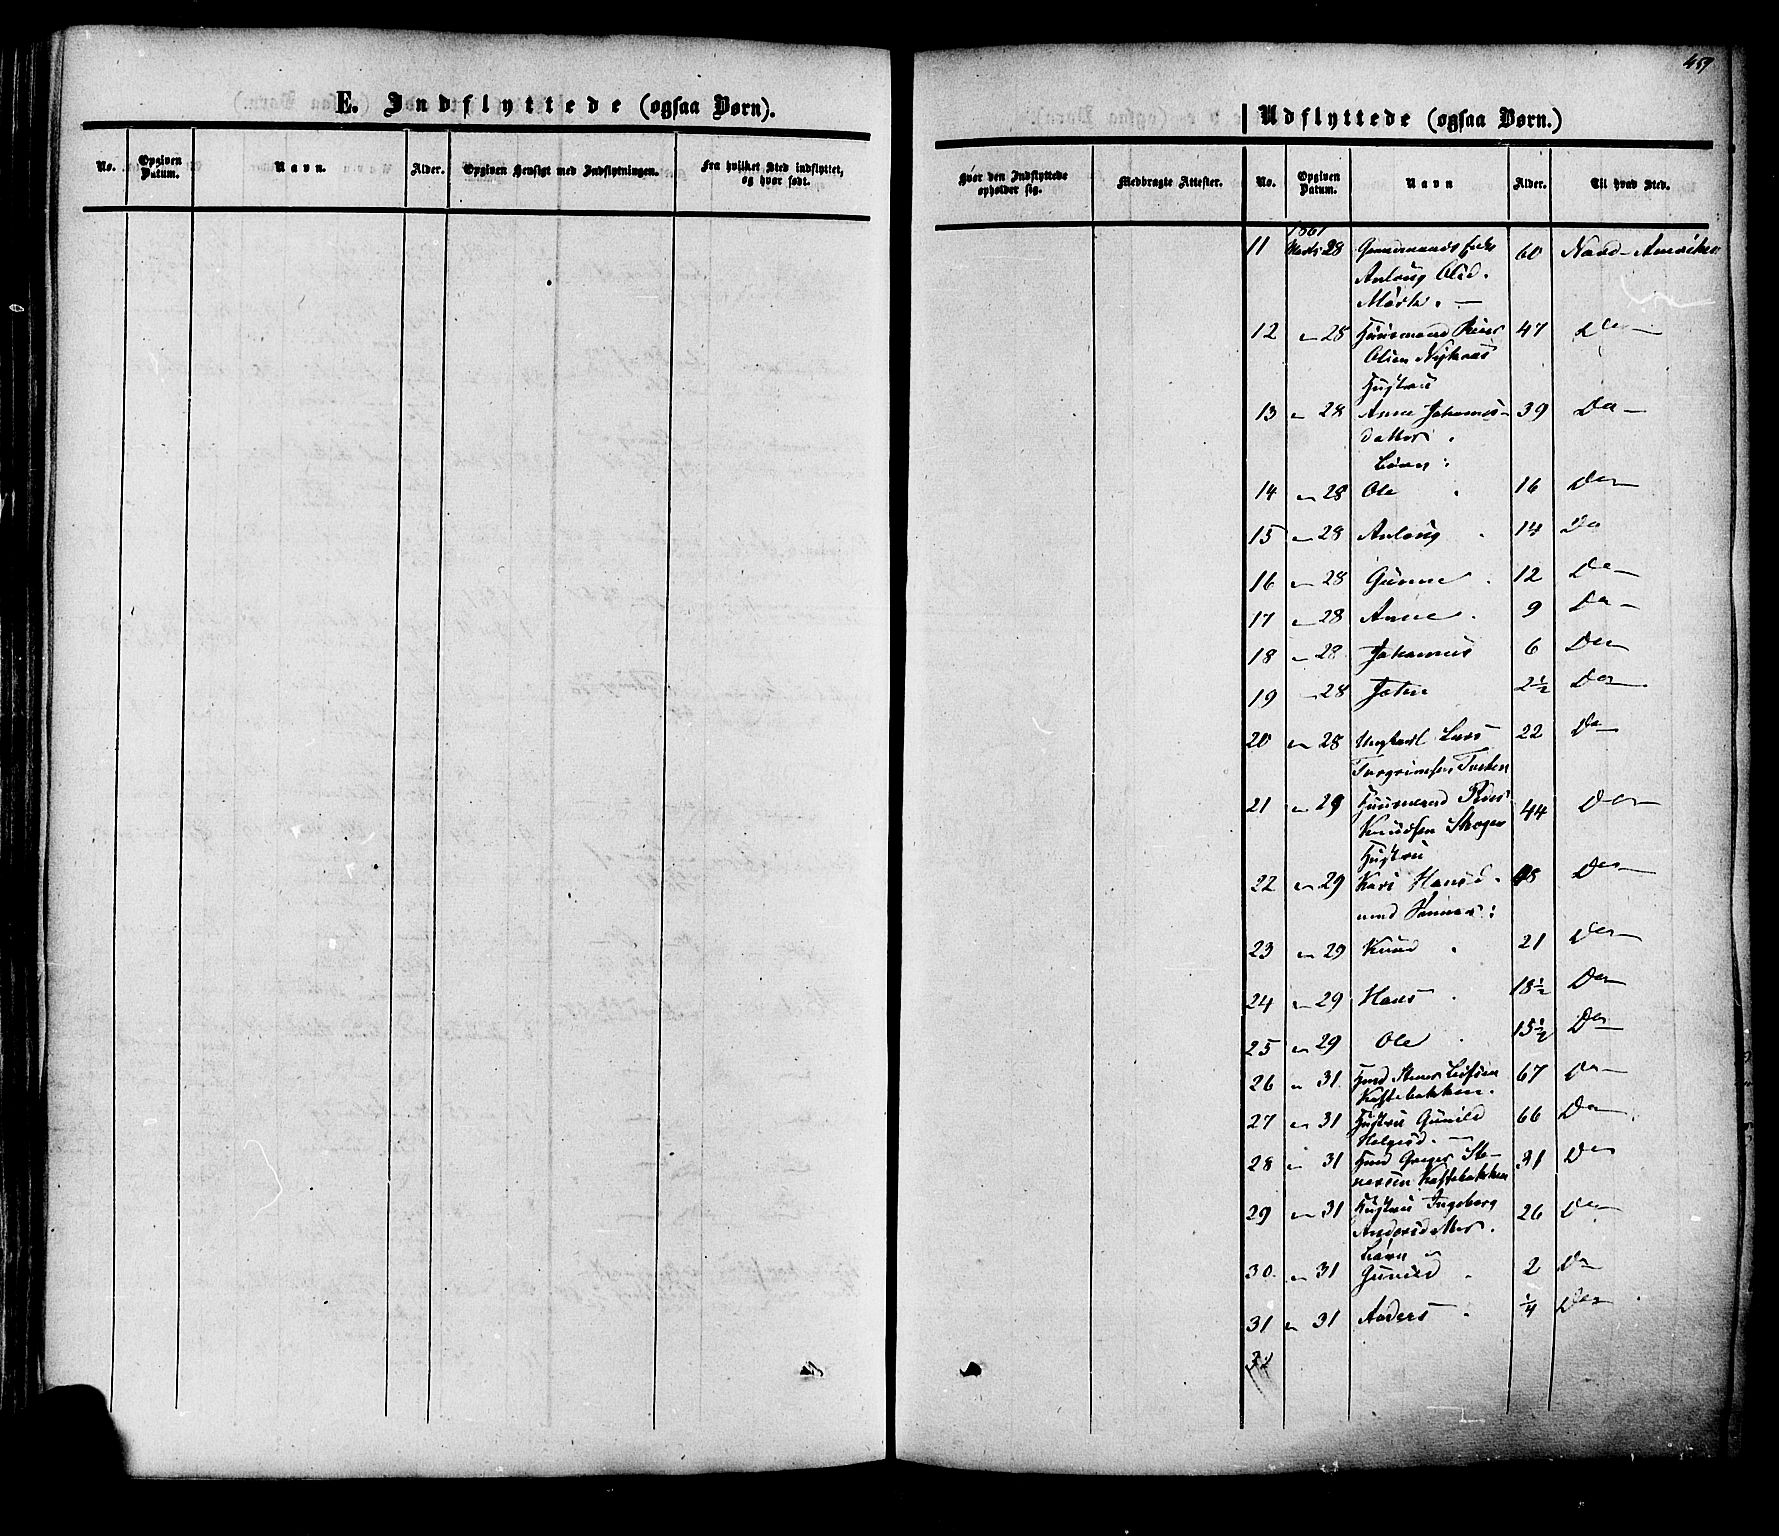 459
E. Indflyttede (ogsaa Børn).
No.
Opgiven Datum.
Navn.
Alder.
Opgiven Hensigt med Indflytningen.
Fra hvilket Sted indflyttet, og hvor født.
Udflyttede (ogsaa Børn.)
Hvor den Indflyttede opholder sig.
Medbragte Attester.
No.
Opgiven Datum.
Navn
Alder.
Til hvad Sted.
1861
11 Marts 28 Enke 60 Nord-Amerika
Anlaug Olsd.
12 " 28 Huusmand 47 Do
Olsen
Hustrue
13 " 28 Anne Johannes- 39 Do
datter.
Børn:
14 " 28 Ole 16 Do
15 " 28 Anlaug 14 Do
16 " 28 Gunne 12 Do
17 " 28 Anne 9 Do
18 " 28 Johannes 6 Do
19 " 28 2½ Do
20 " 28 Ungkarl Lars 22 Do
Torgrimsen
21 " 29 Huusmand 44 Do
Knudsen
Hustrue
22 " 29 Kari Hansd. 48 Do
med Sønner:
23 " 29 Knud 21 Do
24 " 29 Hans 18½ Do
25 " 29 Ole 15½ Do
26 " 31 Huusd Stener Leifsen 67 Do
Kastebakken.
27 " 31 Hustru Gunild 66 Do
Helgesd.
28 " 31 Huusd Gregar Ste- 31 Do
nersen Kastebakken
29 " 31 Hustrue Ingeborg 26 Do
Andersdatter.
Børn
30 " 31 Gunild 2 Do
31 " 31 Anders ¼ Do
32